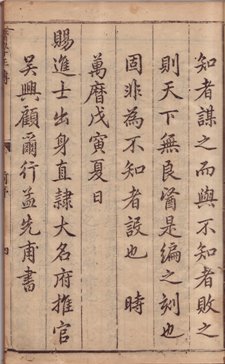 知者謀之而與不知者敗之
則天下無良醫是編之刻也
固非為不知者設也 時
萬曆戊寅夏日
賜進士出身直隸大名府推官
吳興顧爾行益先甫書